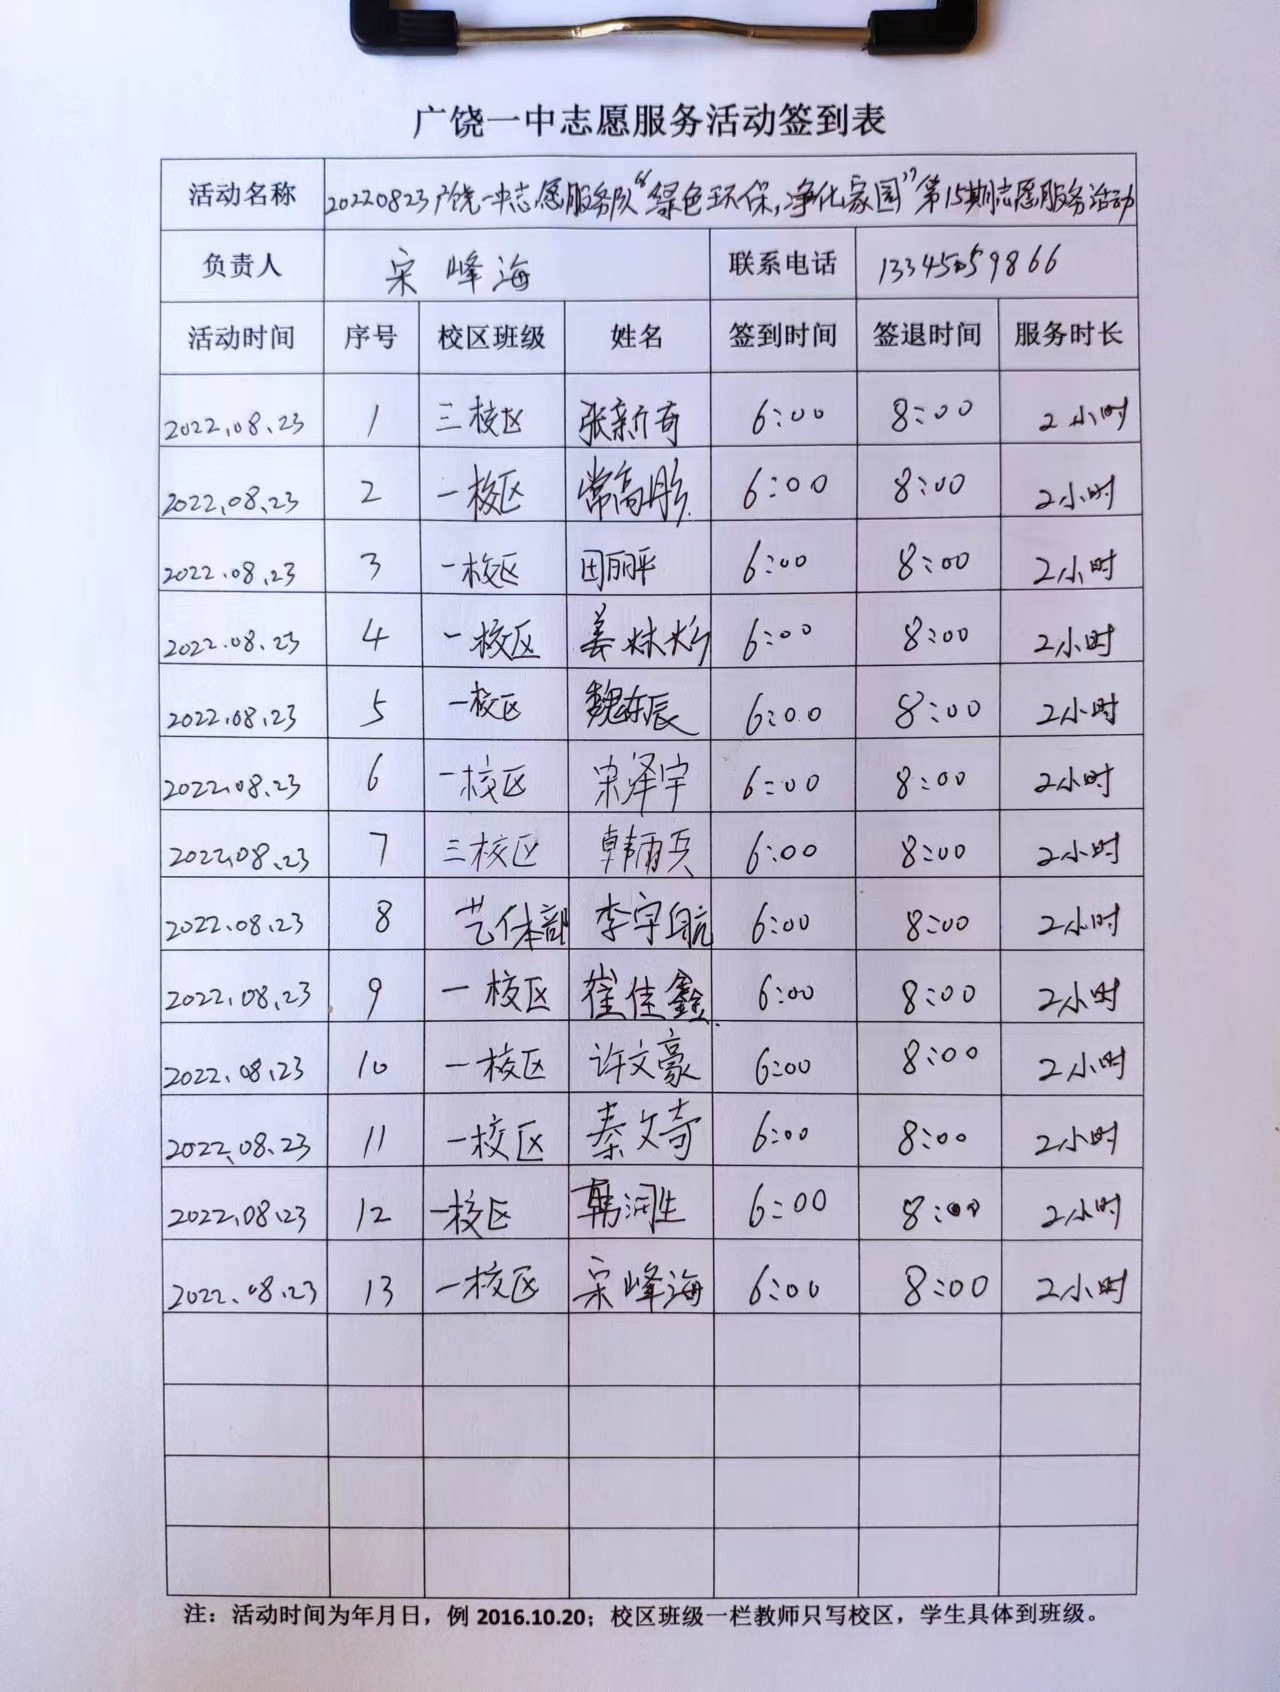 广饶一中志愿服务活动签到表
活动名称 20220823广饶一中志愿服务队“绿色环保,净化家园”第15期志愿服务活动
负责人 宋峰海 联系电话 13345059866
活动时间 序号 校区班级 姓名 签到时间 签退时间 服务时长
2022.08.23 1 三校区 张新奇 6:00 8:00 2小时
2022.08.23 2 一校区 常高彤 6:00 8:00 2小时
2022.08.23 3 一校区 田丽平 6:00 8:00 2小时
2022.08.23 4 一校区 姜 6:00 8:00 2小时
2022.08.23 5 一校区 魏东辰 6:00 8:00 2小时
2022.08.23 6 一校区 宋泽宇 6:00 8:00 2小时
2022.08.23 7 三校区 韩丙兵 6:00 8:00 2小时
2022.08.23 8 艺体部 李宇航 6:00 8:00 2小时
2022.08.23 9 一校区 崔佳鑫 6:00 8:00 2小时
2022.08.23 10 一校区 许文豪 6:00 8:00 2小时
2022.08.23 11 一校区 秦文奇 6:00 8:00 2小时
2022.08.23 12 一校区 韩润生 6:00 8:00 2小时
2022.08.23 13 一校区 宋峰海 6:00 8:00 2小时
注：活动时间为年月日，例 2016.10.20；校区班级一栏教师只写校区，学生具体到班级。